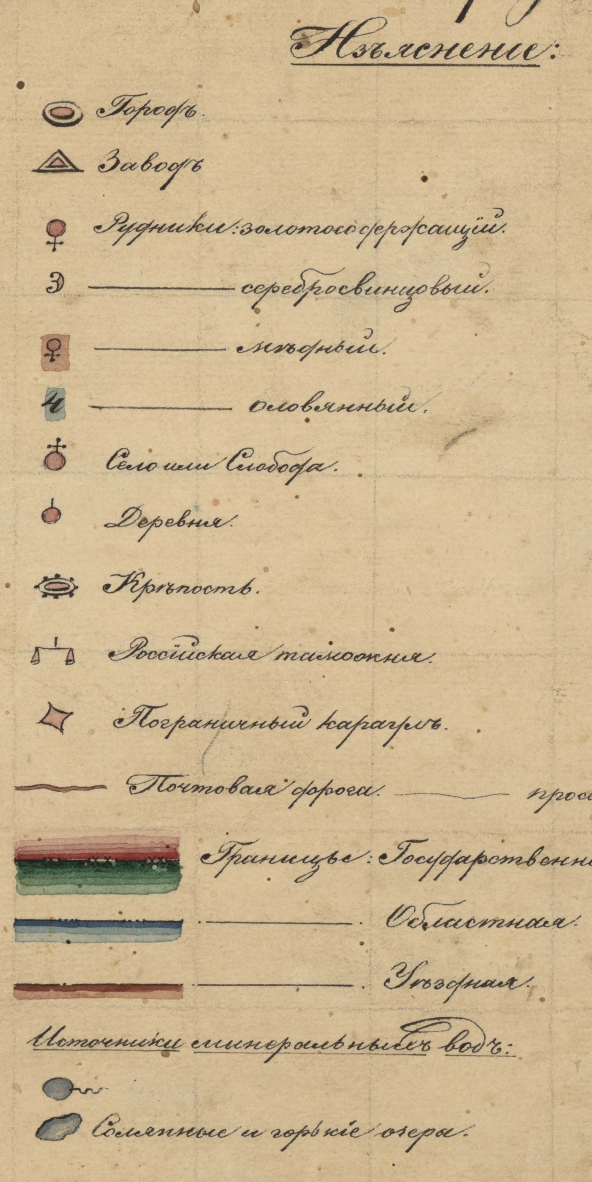 Изъясненіе:
Городъ.
Заводъ
Рудники: золотосодержащій.
З ——— серебросвинцовый.
——— мѣдный.
4 ——— оловянный.
Село или Слобода.
Деревня.
Крѣпость.
Россійская таможня.
Пограничный караулъ.
Почтовая дорога. ———
Границы: Государственн
———. Областная.
———. Уѣздная.
Источники минеральныхъ водъ:
Солянные и горькіе озера.